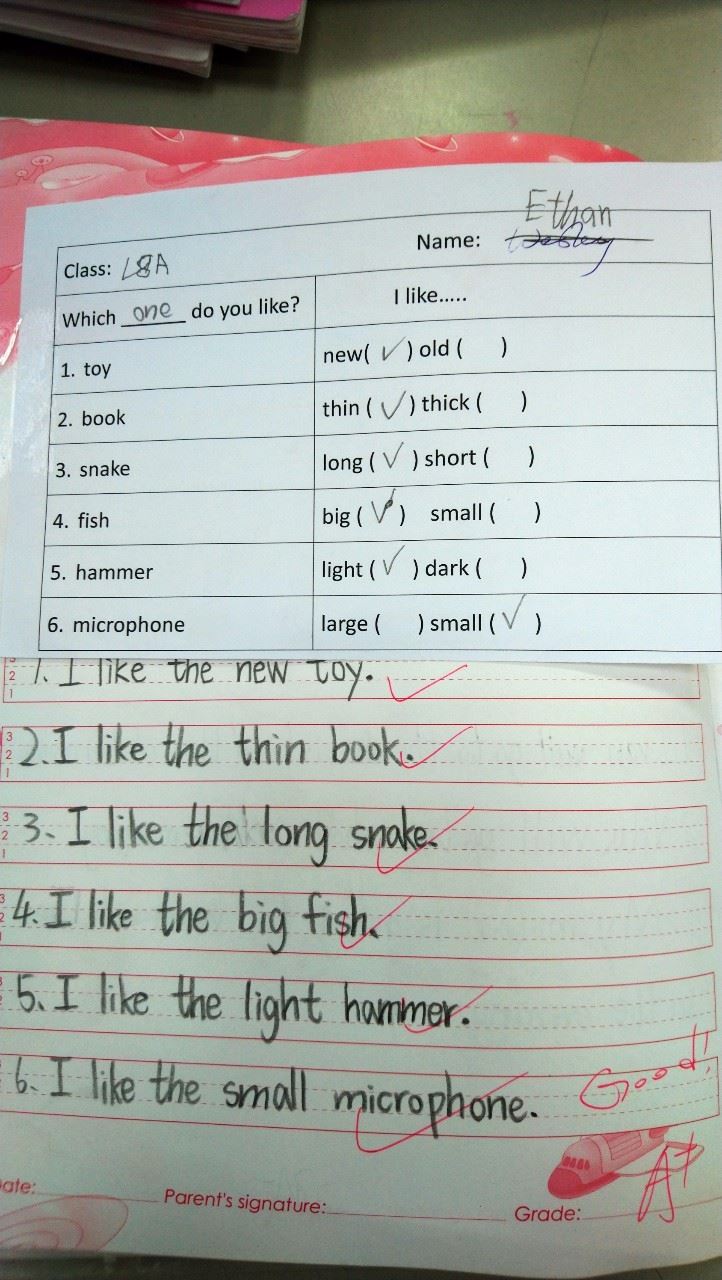 Ethan
Class: L8A Name: Wesley
Which one do you like? I like.....
1. toy new( ✓ ) old ( )
2. book thin ( ✓ ) thick ( )
3. snake long ( ✓ ) short ( )
4. fish big ( ✓ ) small ( )
5. hammer light ( ✓ ) dark ( )
6. microphone large ( ) small ( ✓ )
1. I like the new toy.
2. I like the thin book.
3. I like the long snake.
4. I like the big fish.
5. I like the light hammer.
6. I like the small microphone.
Good!
ate: Parent's signature: Grade: A+